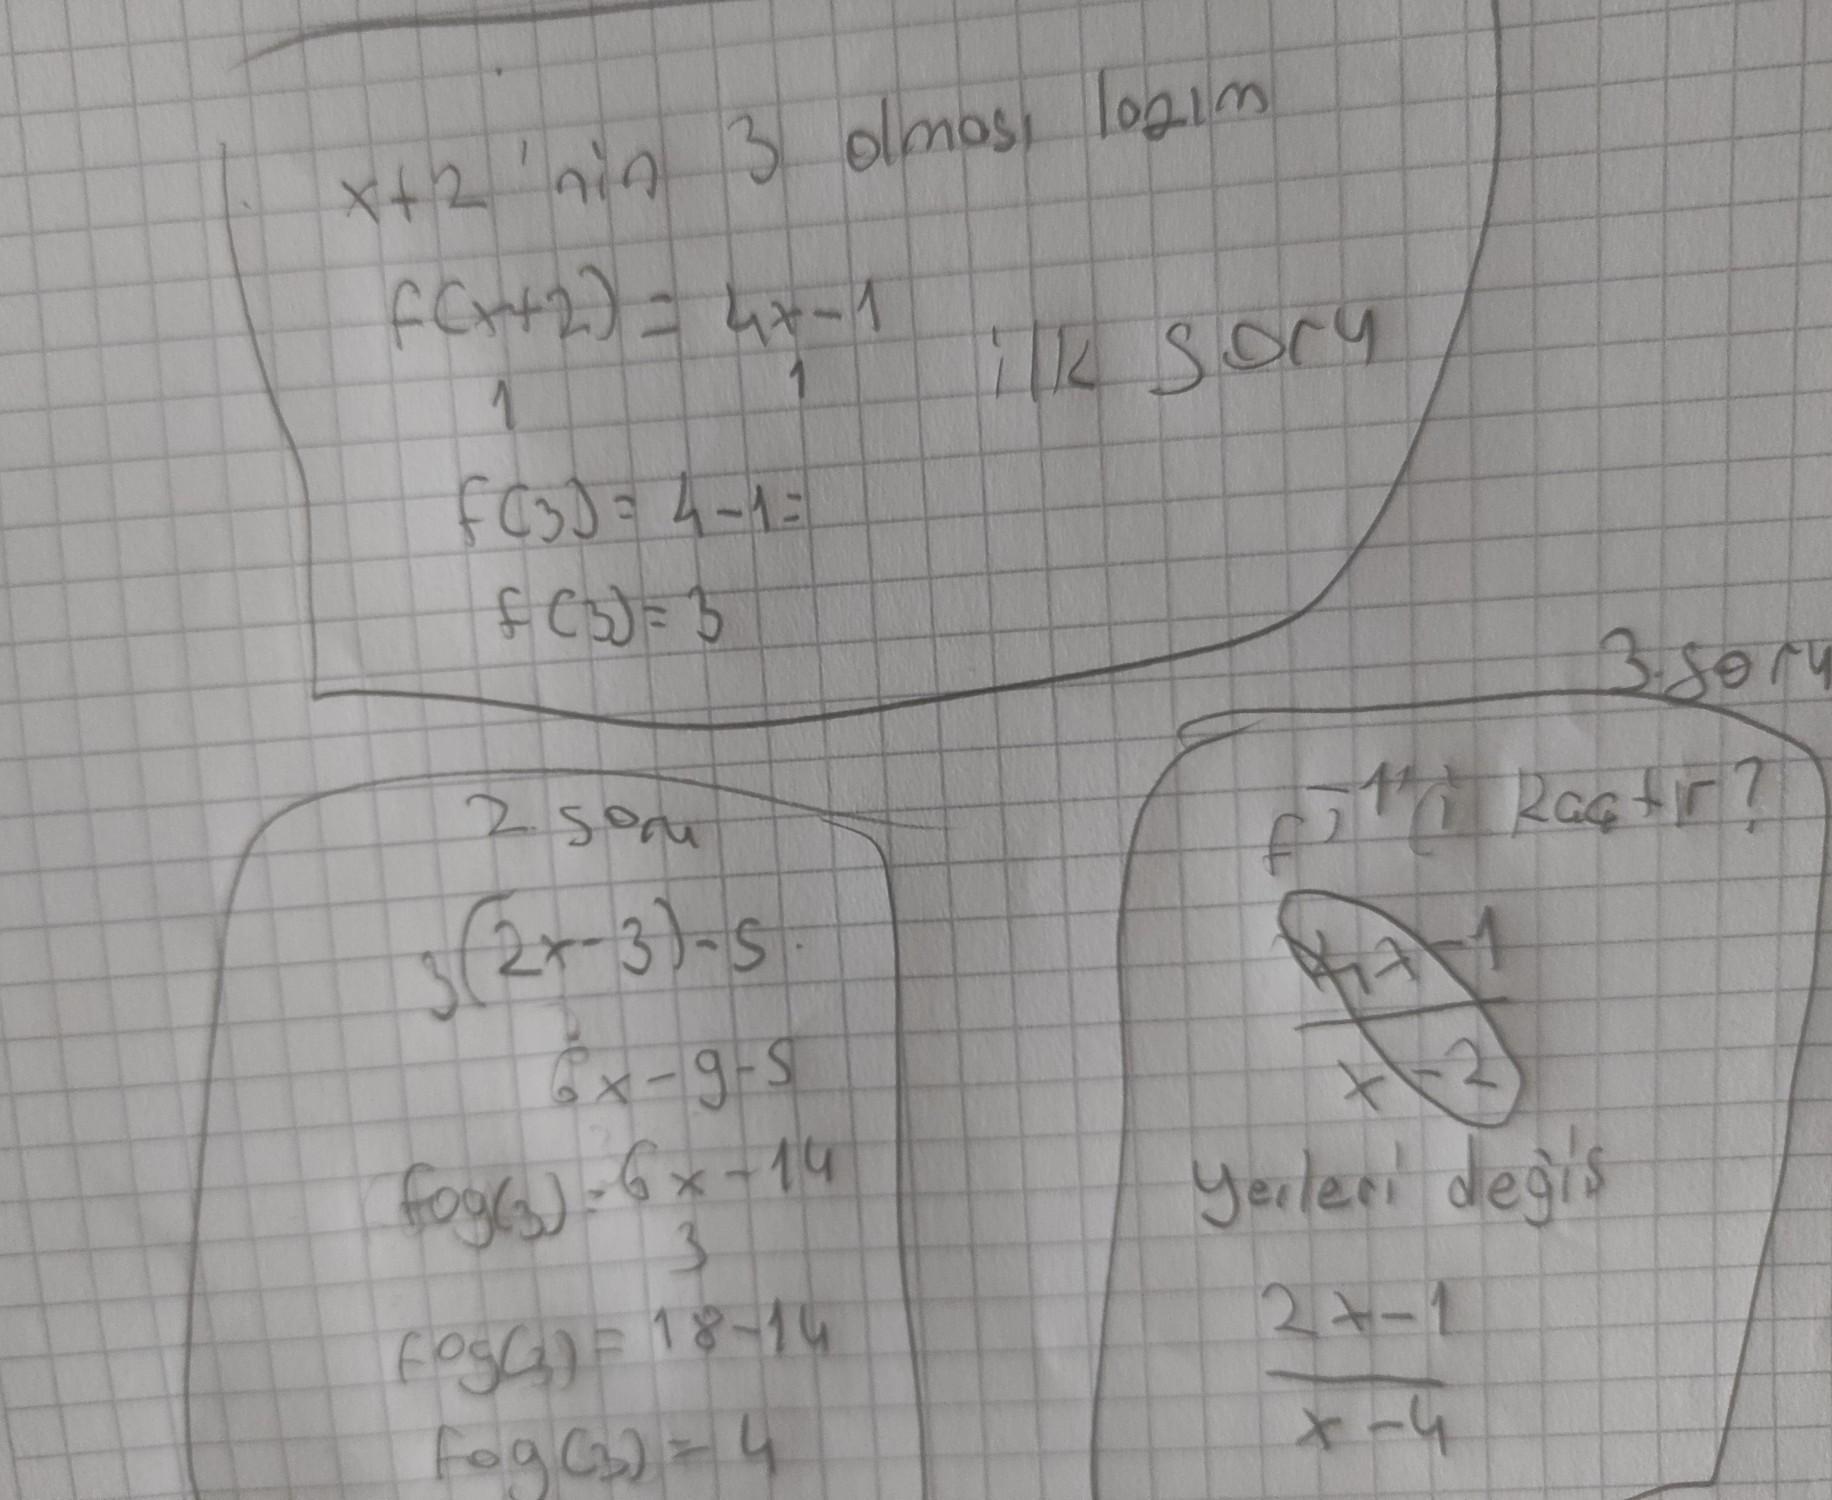 x+2'nin 3 olması lazım
f(x+2) = 4x-1
1 1
ilk soru
f(3) = 4-1=
f(3) = 3
2. soru
3(2x-3)-5
6x-9-5
fog(3) = 6x-14
3
fog(3) = 18-14
fog(3) = 4
3. soru
kaçtır?
4x-1
x-2
yerleri değiş
2x-1
x-4